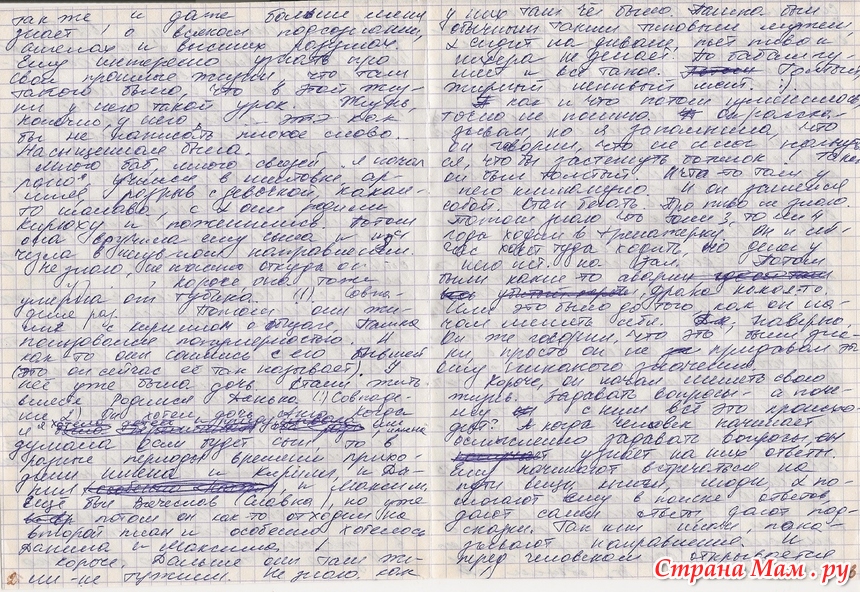 так же и даже больше меня
знает, о всяком подсознании,
ангелах и высших разумах.
Ему интересно узнать про
свои прошлые жизни, что там
такого было, что в этой жиз-
ни у него такой урок. Жизнь,
конечно, у него, . . . это как
бы не написать плохое слово...
Насыщенная была.
Много баб, много связей. Я начал
рано: учился в
разрыв с девочкой, какая-
то шалава, с
Кирюху и поженились. Потом
она вручила ему сына и ис-
чезла в неизвестном направлении.
Не знаю, не помню откуда он
у , короче, она тоже
умерла от тубика. (!). Совпа-
дение раз. Потом они жи-
ли с Кириллом в общаге, Пашка
пользовался популярностью. И
как то они сошлись с его бывшей
(это он сейчас её так называет). У
неё уже была дочь. Стали жить
вместе. Родился Данька. (!) Совпаде-
ние 2) Он хотел дочь
я
думала если будет сын то в
разные периоды времени прихо-
дили имена и Кирилл, и Да-
нил и Максим,
ещё был Вячеслав (Славка), но уже
потом он как то отходил на
второй план и особенно хотелось
Данила и Максима.
Короче. Дальше они там жи-
ли-не тужили. Не знаю, как
2
у них там чё было. Пашка был
обычным таким типовым мужем,
сидит на диване, пьёт пиво и
нихера не делает. По бабам гу-
ляет и всё такое. Толстый
жирный ленивый мент. :).
как и что потом изменилось
точно не помню. он расска-
зывал, но я запомнила, что
он говорил, что не мог нагнуть-
ся, чтобы застегнуть ботинок. Такой
он был толстый. И что то там у
него клинануло. И он занялся
собой. Стал бегать. Про пиво не знаю.
Потом знаю что толи 3, то ли 4
года ходил в тренажёрку, он и сей-
час хочет туда ходить, но денег у
него нет. на зал. Потом
были какие то аварии
драка какая то
Или это было до того как он на-
чал менять себя. наверно.
Он же говорил, что это были зна-
ки, просто он не придавал э-
тому никакого значения.
Короче, он начал менять свою
жизнь. Задавать вопросы - а поче-
му с ним всё это происхо-
дит? А когда человек начинает
осмысленно задавать вопросы, он
узнаёт на них ответы.
Ему начинают встречаться на
пути вещи, книги, люди, по-
могают ему в поиске ответов,
дают сами ответы, дают под-
сказки. Так или иначе, пока-
зывают направления. И
перед человеком открывается
3
Страна Мам.ру